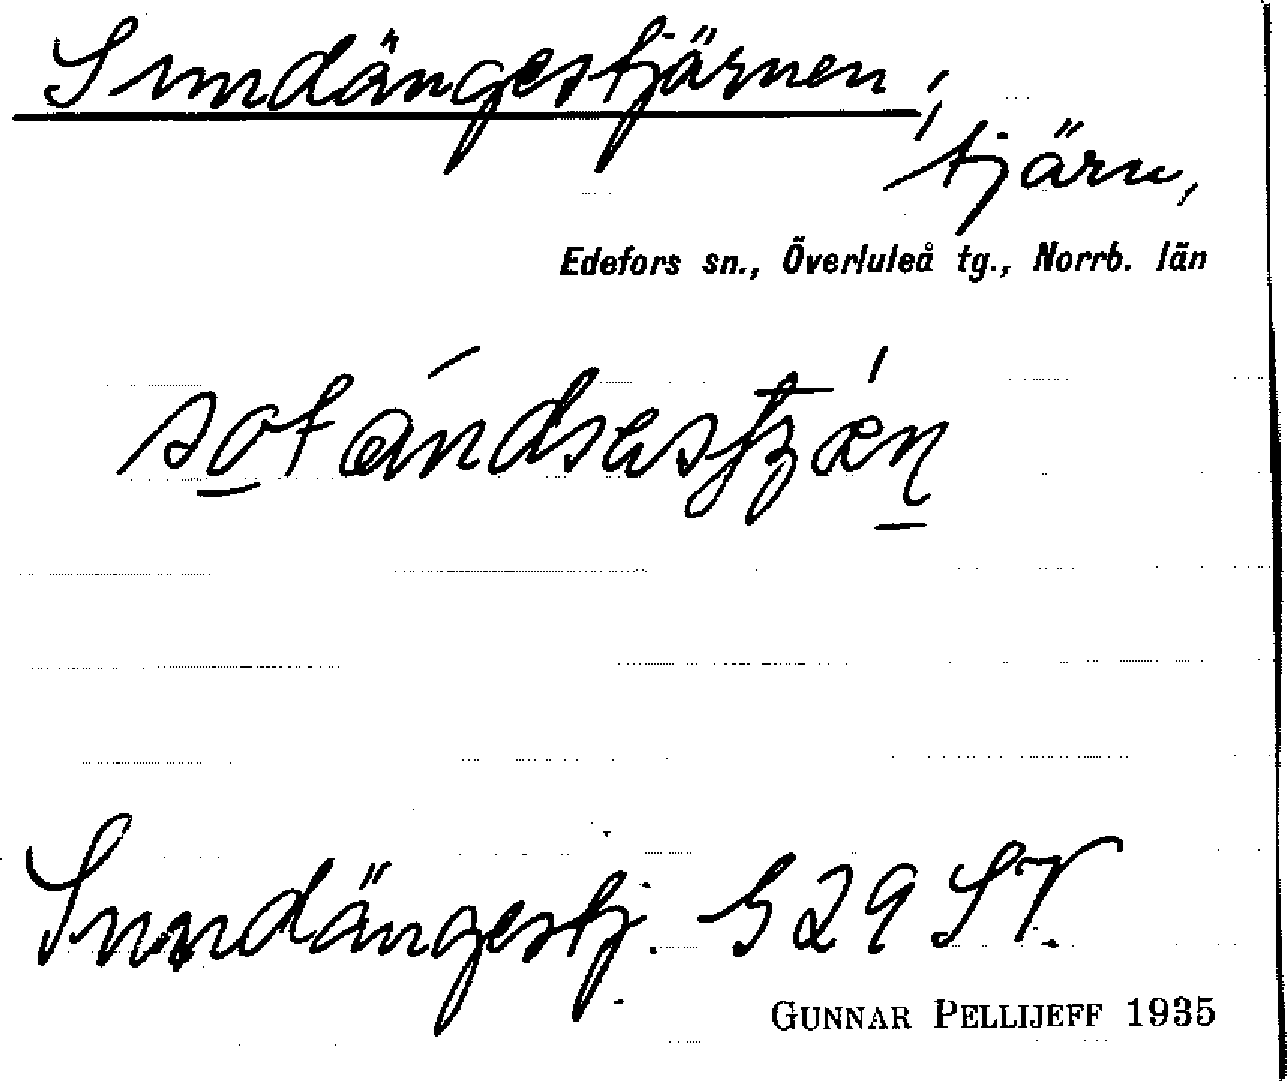 Sundängestjärnen,
tjärn,
Edefors sn., Överluleå tg., Norrb. län
Sundängestj. 529 SV.
GUNNAR PELLIJEFF 1935